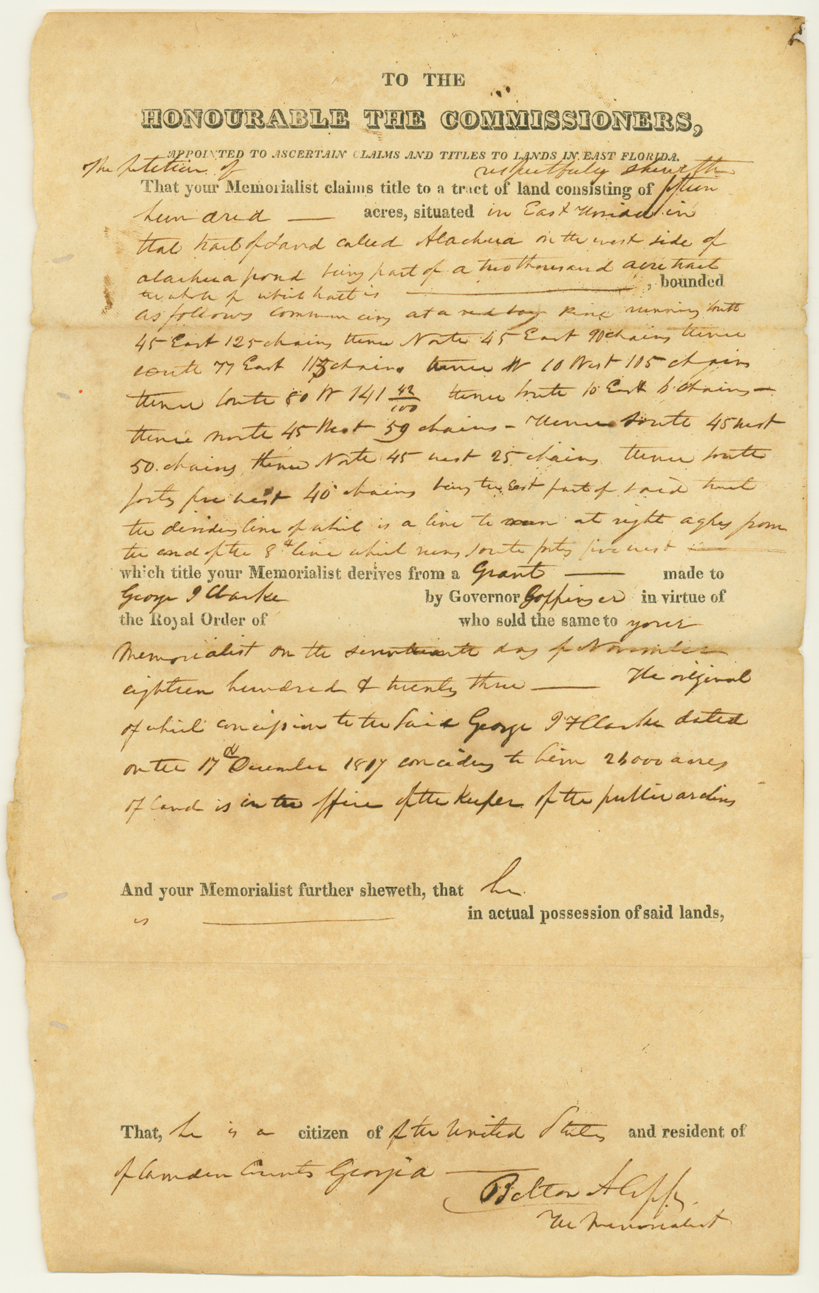 TO THE
HONOURABLE THE COMMISSIONERS,
APPOINTED TO ASCERTAIN CLAIMS AND TITLES TO LANDS IN EAST FLORIDA.
The petition of respectfully sheweth
That your Memorialist claims title to a tract of land consisting of fifteen
hundred — acres, situated in East Florida in
that tract of land called Alachua on the west side of
alachua pond being part of a two thousand acre tract
the whole of which tract is —, bounded
as follows commencing at a red bay running South
45 East 125 chains thence North 45 East 90 chains thence
south 77 East 113 chains thence N 10 West 105 chains
thence South 80 W 141 42/100 thence South 10 East 6 chains —
thence north 45 West 59 chains — thence South 45 west
50 chains thence North 45 west 25 chains thence South
forty five west 40 chains being the East part of said tract
the dividing line of which is a line to run at right agles from
the end of the 8th line which runs South forty five west —
which title your Memorialist derives from a Grant — made to
George J Clarke by Governor Coppinger in virtue of
the Royal Order of who sold the same to your
Memorialist on the seventeenth day of November
eighteen hundred & twenty three — The original
of which concession to the said George J F Clarke dated
on the 17th December 1817 conceding to him 26000 acres
of land is in the office of the Keeper of the public archives
And your Memorialist further sheweth, that he
is — in actual possession of said lands,
That, he is a citizen of of the United States and resident of
of Camden County Georgia —
Belton A Copp.
The Memorialist